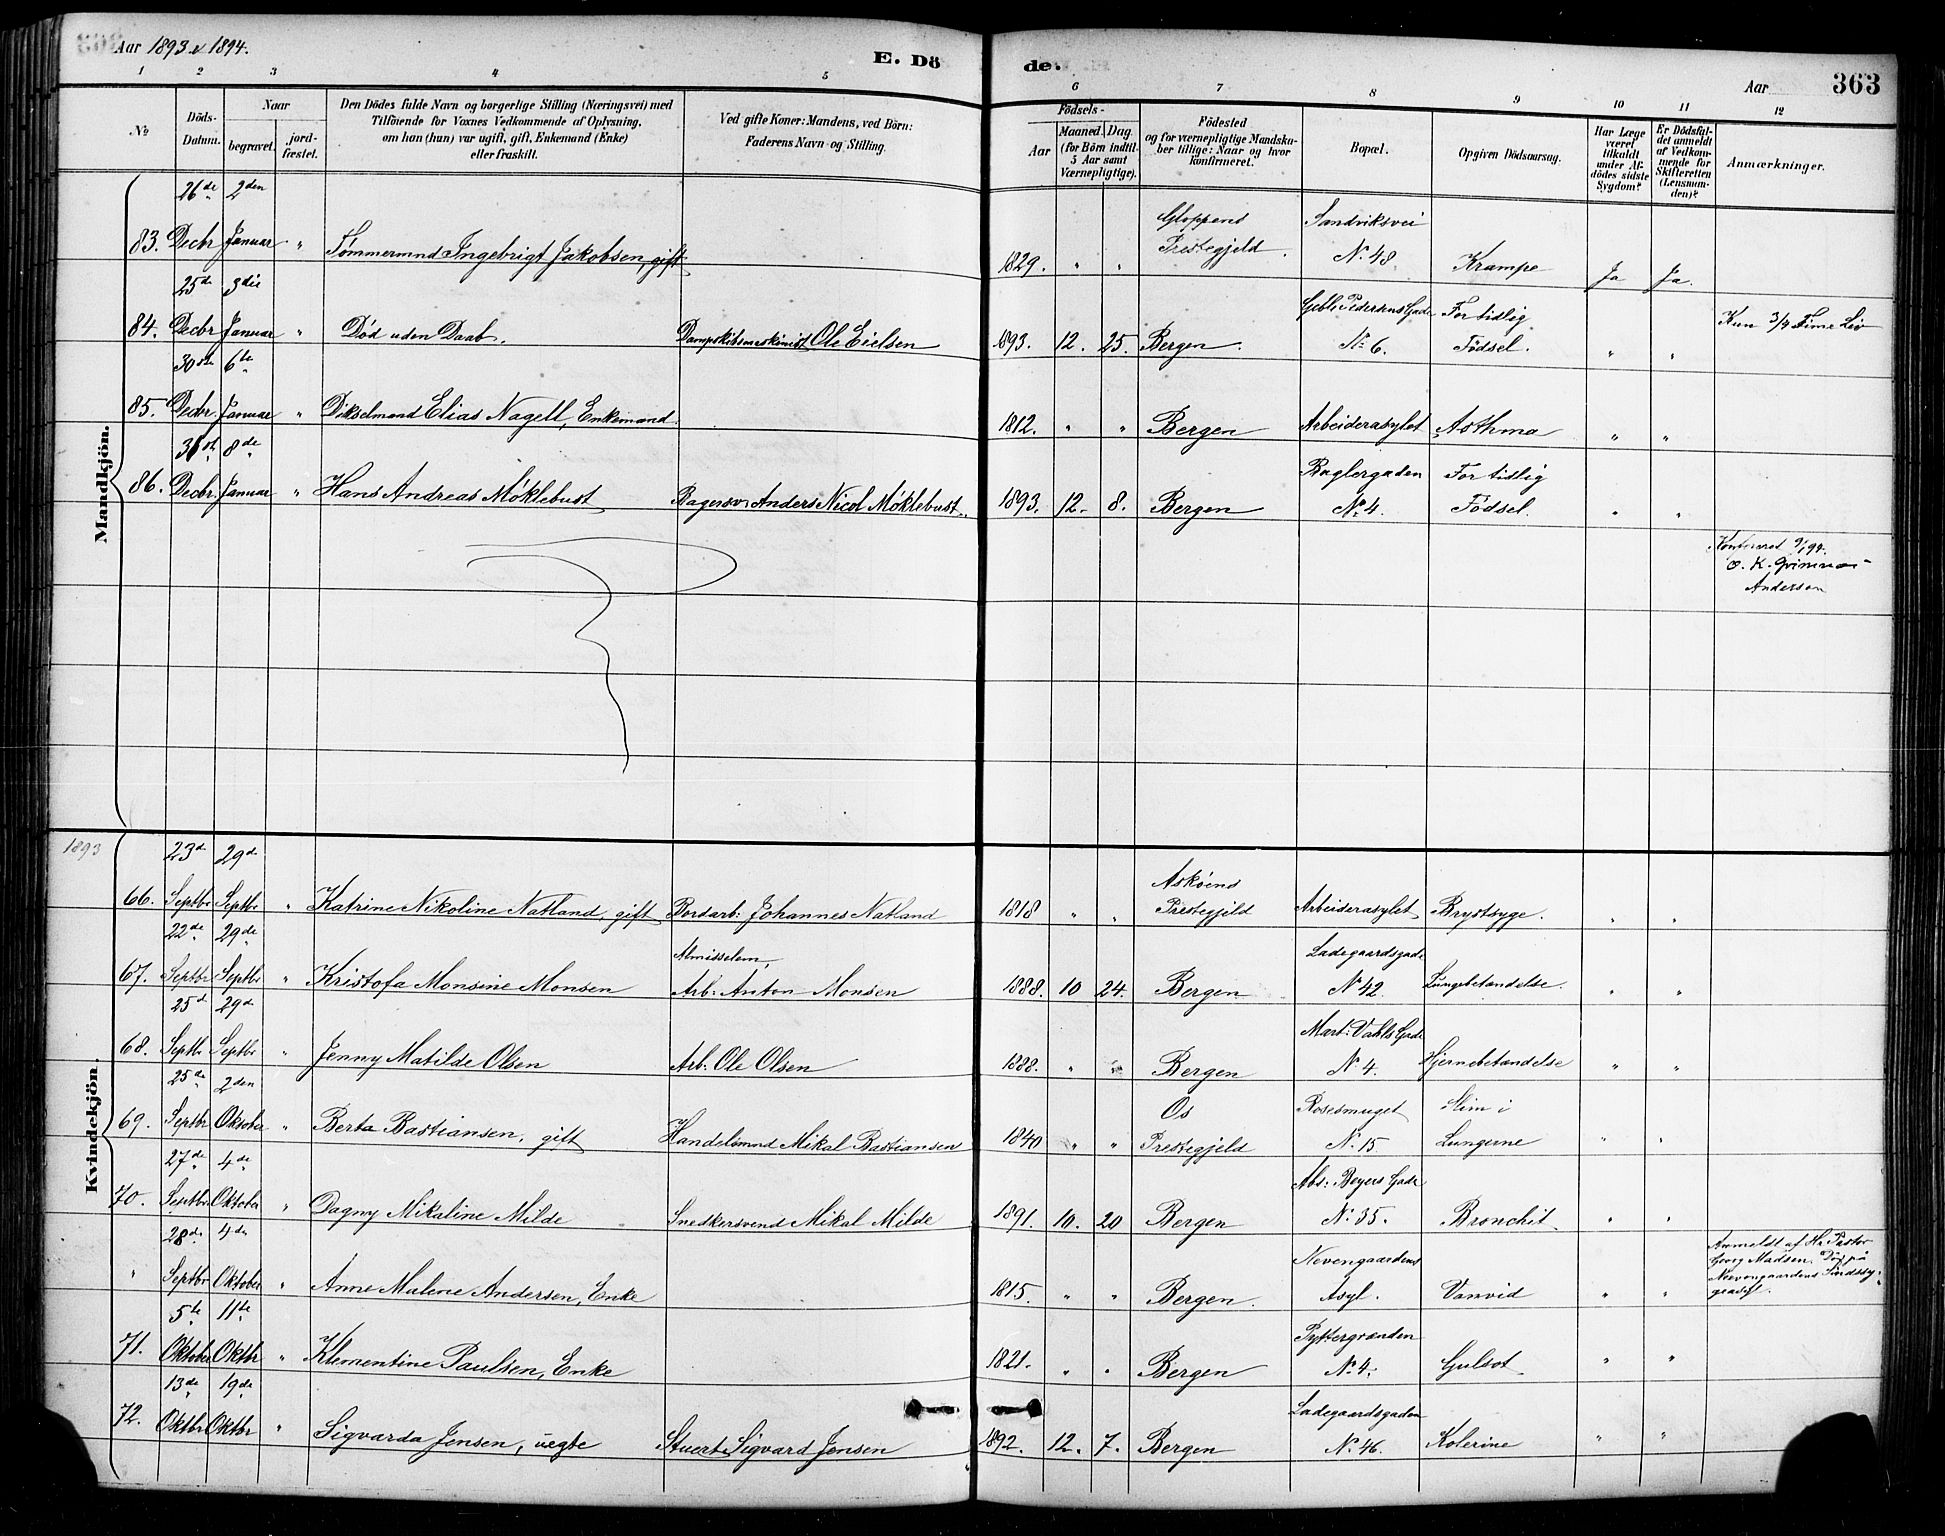 Aar 1893 & 1894.
E. Döde.
Aar
363
1 2 3 4 5 6 7 8 9 10 11 12
No
Döds-Datum.
Naar
begravet.
jord-fæstet.
Den Dödes fulde Navn og borgerlige Stilling (Næringsvei) med
Tilföiende for Voxnes Vedkommende af Oplysning,
om han (hun) var ugift, gift, Enkemand (Enke)
eller fraskilt.
Ved gifte Koner: Mandens, ved Börn:
Faderens Navn og Stilling.
Födsels-
Aar
Maaned. Dag.
(for Börn indtil
5 Aar samt
Værnepligtige).
Födested
og for værnepligtige Mandskaber tillige: Naar og hvor
konfirmeret.
Bopæl.
Opgiven Dödsaarsag.
Har Læge
været
tilkaldt
under Af-
dödes sidste
Sygdom?
Er Dödsfal-
det anmeldt
af Vedkom-
mende for
Skifteretten
(Lensman-
den)?
Anmærkninger.
Mandkjön.
26de 2den Gloppens Sandviksvei
83. Decbr Januar " Tømmermnd Ingebrigt Jakobsen, gift 1829. " " Prestegjeld N. 48 Krampe Ja Ja.
25de 3die Gabl. Pedersens Gade For tidlig
84. Decbr Januar " Død uden Daab. Dampskibsmaskinist Ole Eielsen 1893. 12. 25. Bergen. No 6. Fødsel. " " Kun 3/4 Time Liv
30te 6te
85. Decbr. Januar " Dikselmand Elias Nagell, Enkemand. 1812. " " Bergen Arbeiderasylet Asthma " "
31te 8de Baglergaden For tidlig
86. Decbr. Januar " Hans Andreas Møklebust Bagersv. Anders Nicol Møklebust. 1893. 12. 8. Bergen No 4. Fødsel. " "
Konfereret 9/1 94.
O. K. Grimnæs-
Anderson
1893
Kvindekjön.
23de 29de Askøens
66. Septbr Septbr " Katrine Nikoline Natland, gift Bordarb: Johannes Natland 1818 " " Prestegjeld Arbeiderasylet Brystsyge. " "
22de 29de Almisselem, Ladegaardsgade
67. Septbr Septbr " Kristofa Monsine Monsen Arb: Anton Monsen 1888. 10 24. Bergen No 42 Lungebetændelse. " "
25de 29de Mart: Vahls Gade
68. Septbr Septbr " Jenny Matilde Olsen Arb: Ole Olsen 1888. " " Bergen No 4. Hjernebetændelse " "
25de 2den Os Rosesmuget Slim i
69. Septbr Oktober " Berta Bastiansen, gift Handelsmnd Mikal Bastiansen 1840 " " Prestegjeld No 15 Lungerne " "
27de 4de Abs: Beyers Gade
70. Septbr. Oktober " Dagny Mikaline Milde Snedkersvend Mikal Milde 1891. 10. 20 Bergen No 35. Bronchit. " "
28de 4de Nevengaardens Anmeldt af Hr. Pastor
" Septbr Oktober " Anne Malene Andersen, Enke 1815. " " Bergen. Asyl. Vanvid " " Georg Madsen. Død på
Neevengaardens Sindssyge
5te 11te Pyttergrænden
71. Oktober Oktbr " Klementine Paulsen, Enke 1821. " " Bergen No 4. Gulsot " "
13de 19de Ladegaardsgaden
72. Oktbr Oktbr " Sigvarda Jensen, uegte Stuert Sigvard Jensen 1892. 12. 7. Bergen No 46. Kolerine " "